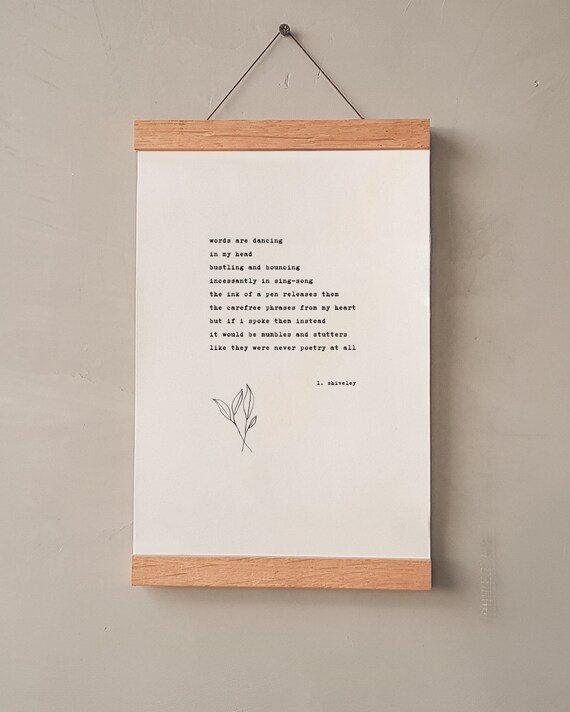 words are dancing
in my head
bustling and bouncing
incessantly in sing-song
the ink of a pen releases them
the carefree phrases from my heart
but if i spoke them instead
it would be mumbles and stutters
like they were never poetry at all
l. shiveley